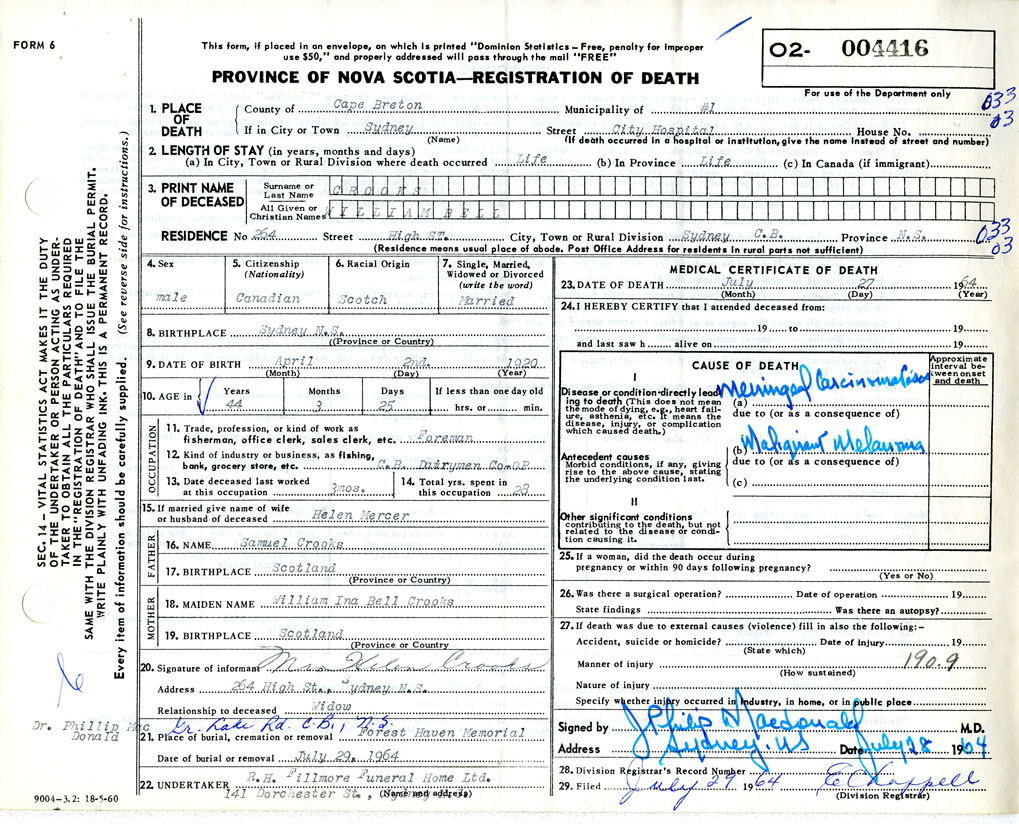 FORM 6
This form, if placed in an envelope, on which is printed "Dominion Statistics – Free, penalty for improper
use $50," and properly addressed will pass through the mail "FREE"
PROVINCE OF NOVA SCOTIA—REGISTRATION OF DEATH
O2- 004416
For use of the Department only
033
03
SEC. 14 – VITAL STATISTICS ACT MAKES IT THE DUTY
OF THE UNDERTAKER OR PERSON ACTING AS UNDER-
TAKER TO OBTAIN ALL THE PARTICULARS REQUIRED
IN THE "REGISTRATION OF DEATH" AND TO FILE THE
SAME WITH THE DIVISION REGISTRAR WHO SHALL ISSUE THE BURIAL PERMIT.
WRITE PLAINLY WITH UNFADING INK. THIS IS A PERMANENT RECORD.
Every item of information should be carefully supplied. (See reverse side for instructions.)
1. PLACE OF DEATH
County of Cape Breton Municipality of #1
If in City or Town Sydney Street City Hospital House No.
(Name) (If death occurred in a hospital or institution, give the name instead of street and number)
2. LENGTH OF STAY (in years, months and days)
(a) In City, Town or Rural Division where death occurred Life (b) In Province Life (c) In Canada (if immigrant)
3. PRINT NAME OF DECEASED
Surname or Last Name CROOKS
All Given or Christian Names WILLIAM BELL
RESIDENCE No 264 Street High ST. City, Town or Rural Division Sydney C.B. Province N.S.
(Residence means usual place of abode. Post Office Address for residents in rural parts not sufficient)
033
03
4. Sex
male
5. Citizenship
(Nationality)
Canadian
6. Racial Origin
Scotch
7. Single, Married,
Widowed or Divorced
(write the word)
Married
8. BIRTHPLACE Sydney N.S.
((Province or Country)
9. DATE OF BIRTH April 2nd. 1920
(Month) (Day) (Year)
10. AGE in Years Months Days If less than one day old
44 3 25 hrs. or min.
OCCUPATION
11. Trade, profession, or kind of work as
fisherman, office clerk, sales clerk, etc. Foreman
12. Kind of industry or business, as fishing,
bank, grocery store, etc. C.B. Dairymen Co-OP
13. Date deceased last worked
at this occupation 3mos.
14. Total yrs. spent in
this occupation 28
15. If married give name of wife
or husband of deceased Helen Mercer
FATHER
16. NAME Samuel Crooks
17. BIRTHPLACE Scotland
(Province or Country)
MOTHER
18. MAIDEN NAME William Ina Bell Crooks
19. BIRTHPLACE Scotland
(Province or Country
20. Signature of informant Mrs Helen Crooks
Address 264 High St., Sydney N.S.
Relationship to deceased Widow
Gr. Lake Rd. C.B., N.S.
Dr. Phillip Mac
Donald
21. Place of burial, cremation or removal Forest Haven Memorial
Date of burial or removal July 29, 1964
22. UNDERTAKER R.H. Fillmore Funeral Home Ltd.
141 Dorchester St.,
(Name and address)
9004–3.2: 18-5-60
MEDICAL CERTIFICATE OF DEATH
23. DATE OF DEATH July 27 1964
(Month) (Day) (Year)
24. I HEREBY CERTIFY that I attended deceased from:
19 to 19
and last saw h alive on 19
CAUSE OF DEATH
Approximate
interval be-
tween onset
and death
I
Disease or condition directly lead-
ing to death (This does not mean
the mode of dying, e.g., heart fail-
ure, asthenia, etc. It means the
disease, injury, or complication
which caused death.)
(a) Meningeal Carcinomatosis
due to (or as a consequence of)
Antecedent causes
Morbid conditions, if any, giving
rise to the above cause, stating
the underlying condition last.
(b) Malignant Melanoma
due to (or as a consequence of)
(c)
II
Other significant conditions
contributing to the death, but not
related to the disease or condi-
tion causing it.
25. If a woman, did the death occur during
pregnancy or within 90 days following pregnancy?
(Yes or No)
26. Was there a surgical operation? Date of operation 19
State findings Was there an autopsy?
27. If death was due to external causes (violence) fill in also the following:–
Accident, suicide or homicide? Date of injury 19
(State which)
Manner of injury 190.9
(How sustained)
Nature of injury
Specify whether injury occurred in industry, in home, or in public place
Signed by J Philip Macdonald M.D.
Address Sydney, NS Date July 28 1964
28. Division Registrar's Record Number
29. Filed July 29 1964 E Chappell
(Division Registrar)